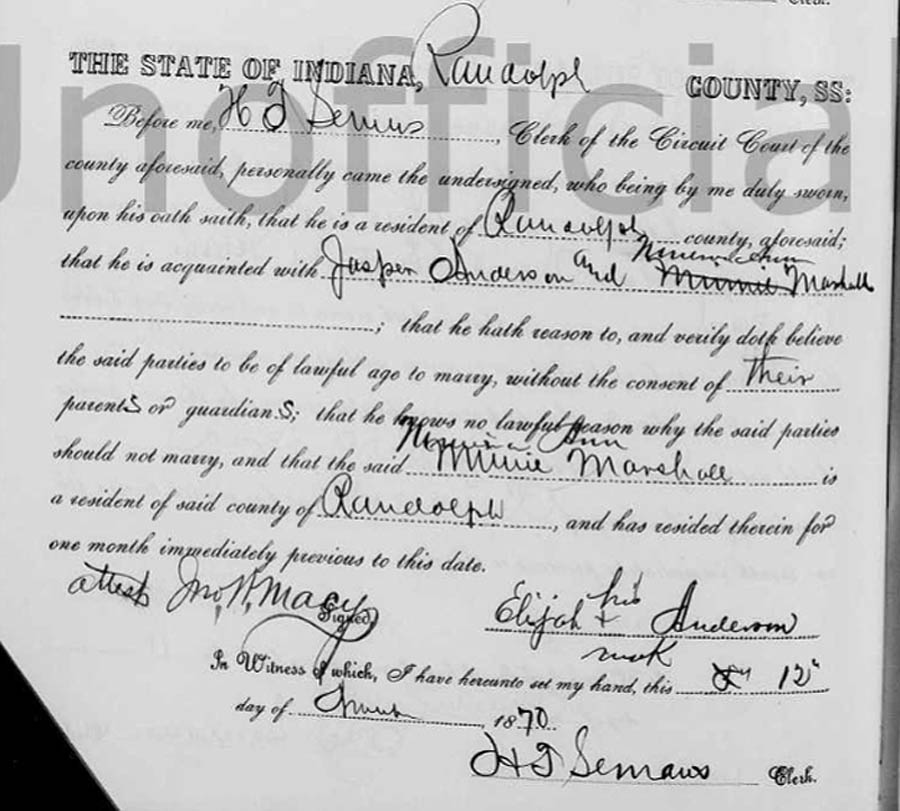 Clerk.
Unofficial
THE STATE OF INDIANA, Randolph COUNTY, SS:
Before me, H T Semans, Clerk of the Circuit Court of the
county aforesaid, personally came the undersigned, who being by me duly sworn,
upon his oath saith, that he is a resident of Randolph county, aforesaid;
Ann
that he is acquainted with Jasper Anderson and Minnie Marshall
; that he hath reason to, and verily doth believe
the said parties to be of lawful age to marry, without the consent of their
parents or guardians; that he knows no lawful reason why the said parties
Ann
should not marry, and that the said Minie Marshall is
a resident of said county of Randolph, and has resided therein for
one month immediately previous to this date.
attest Jno W. Macy Signed, Elijah his + mark Anderson
In Witness of which, I have hereunto set my hand, this 12"
day of 1870
H T Semans Clerk.